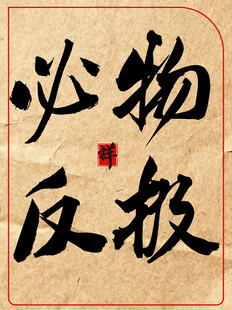 物极
必反
祥